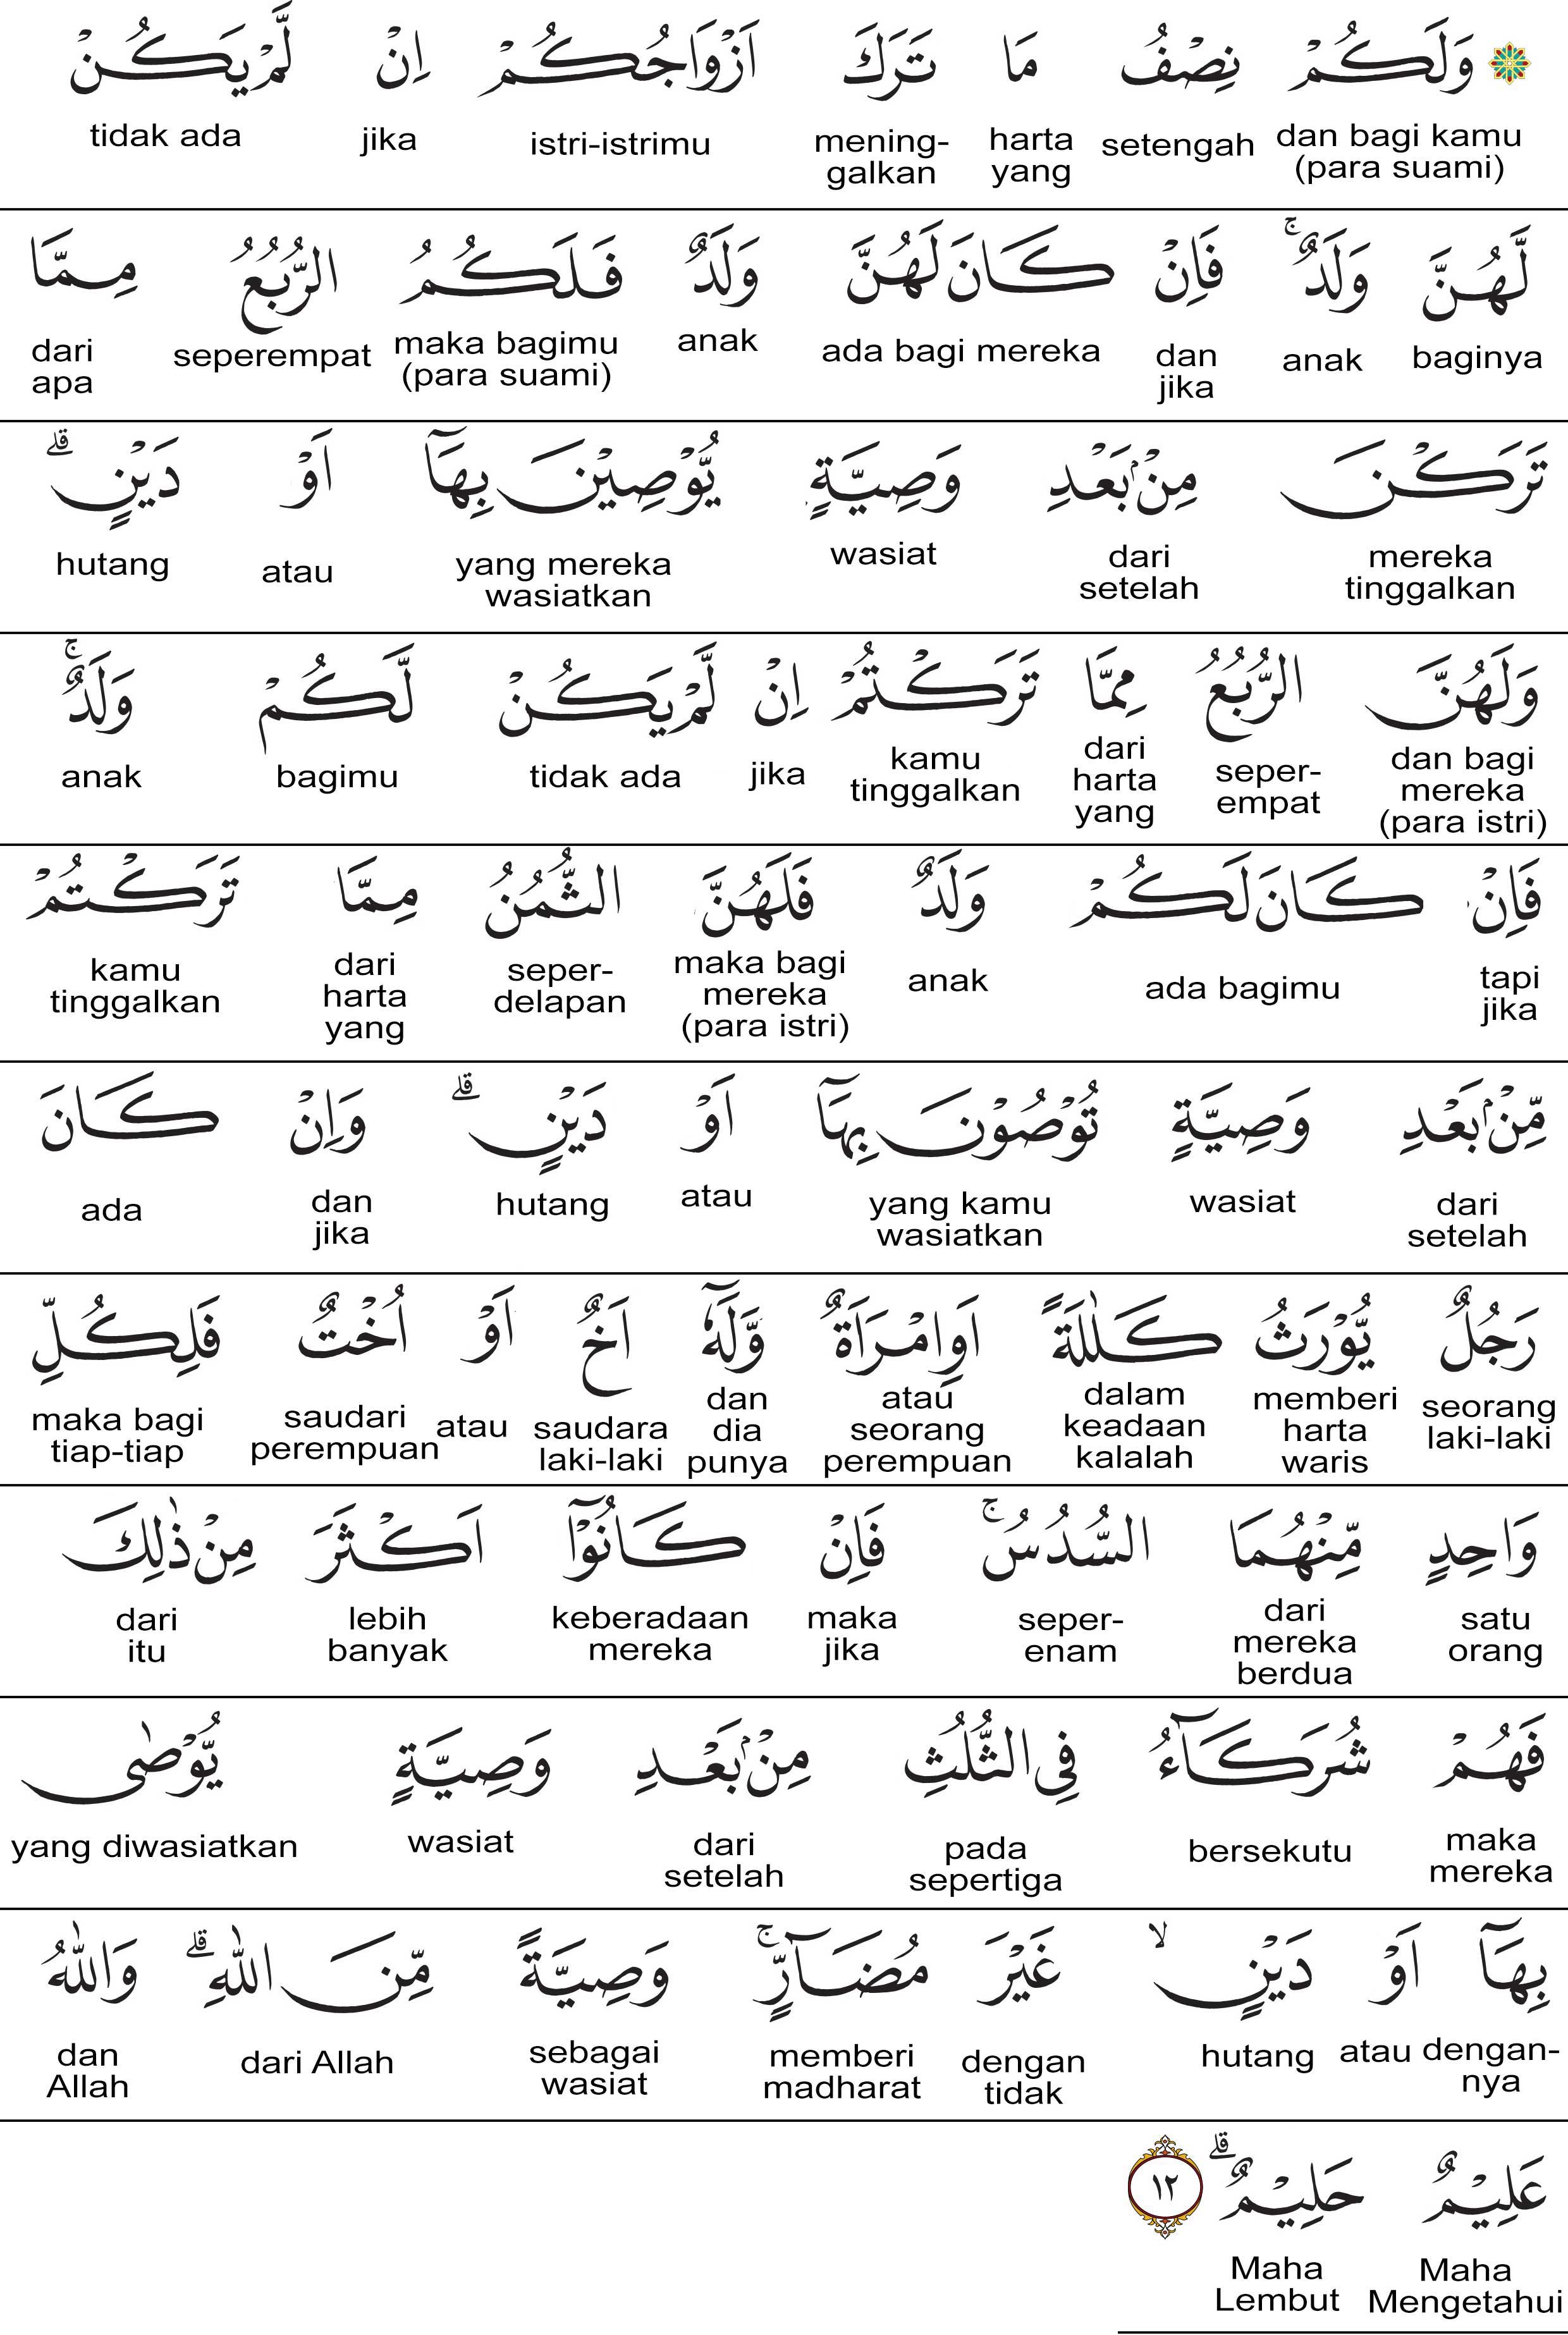 ۞ وَلَكُمْ نِصْفُ مَا تَرَكَ اَزْوَاجُكُمْ اِنْ لَّمْ يَكُنْ
dan bagi kamu (para suami) setengah harta yang mening-galkan istri-istrimu jika tidak ada
لَّهُنَّ وَلَدٌ ۚ فَاِنْ كَانَ لَهُنَّ وَلَدٌ فَلَكُمُ الرُّبُعُ مِمَّا
baginya anak dan jika ada bagi mereka anak maka bagimu (para suami) seperempat dari apa
تَرَكْنَ مِنْۢ بَعْدِ وَصِيَّةٍ يُّوْصِيْنَ بِهَآ اَوْ دَيْنٍ ۗ
mereka tinggalkan dari setelah wasiat yang mereka wasiatkan atau hutang
وَلَهُنَّ الرُّبُعُ مِمَّا تَرَكْتُمْ اِنْ لَّمْ يَكُنْ لَّكُمْ وَلَدٌ ۚ
dan bagi mereka (para istri) seper-empat dari harta yang kamu tinggalkan jika tidak ada bagimu anak
فَاِنْ كَانَ لَكُمْ وَلَدٌ فَلَهُنَّ الثُّمُنُ مِمَّا تَرَكْتُمْ
tapi jika ada bagimu anak maka bagi mereka (para istri) seper-delapan dari harta yang kamu tinggalkan
مِّنْۢ بَعْدِ وَصِيَّةٍ تُوْصُوْنَ بِهَآ اَوْ دَيْنٍ ۗ وَاِنْ كَانَ
dari setelah wasiat yang kamu wasiatkan atau hutang dan jika ada
رَجُلٌ يُّوْرَثُ كَلٰلَةً اَوِامْرَاَةٌ وَّلَهٗٓ اَخٌ اَوْ اُخْتٌ فَلِكُلِّ
seorang laki-laki memberi harta waris dalam keadaan kalalah atau seorang perempuan dan dia punya saudara laki-laki atau saudari perempuan maka bagi tiap-tiap
وَاحِدٍ مِّنْهُمَا السُّدُسُ ۚ فَاِنْ كَانُوْٓا اَكْثَرَ مِنْ ذٰلِكَ
satu orang dari mereka berdua seper-enam maka jika keberadaan mereka lebih banyak dari itu
فَهُمْ شُرَكَاۤءُ فِى الثُّلُثِ مِنْۢ بَعْدِ وَصِيَّةٍ يُّوْصٰى
maka mereka bersekutu pada sepertiga dari setelah wasiat yang diwasiatkan
بِهَآ اَوْ دَيْنٍ ۙ غَيْرَ مُضَاۤرٍّ ۚ وَصِيَّةً مِّنَ اللّٰهِ ۗ وَاللّٰهُ
dengan-nya atau hutang dengan tidak memberi madharat sebagai wasiat dari Allah dan Allah
عَلِيْمٌ حَلِيْمٌ ۗ ١٢
Maha Mengetahui Maha Lembut